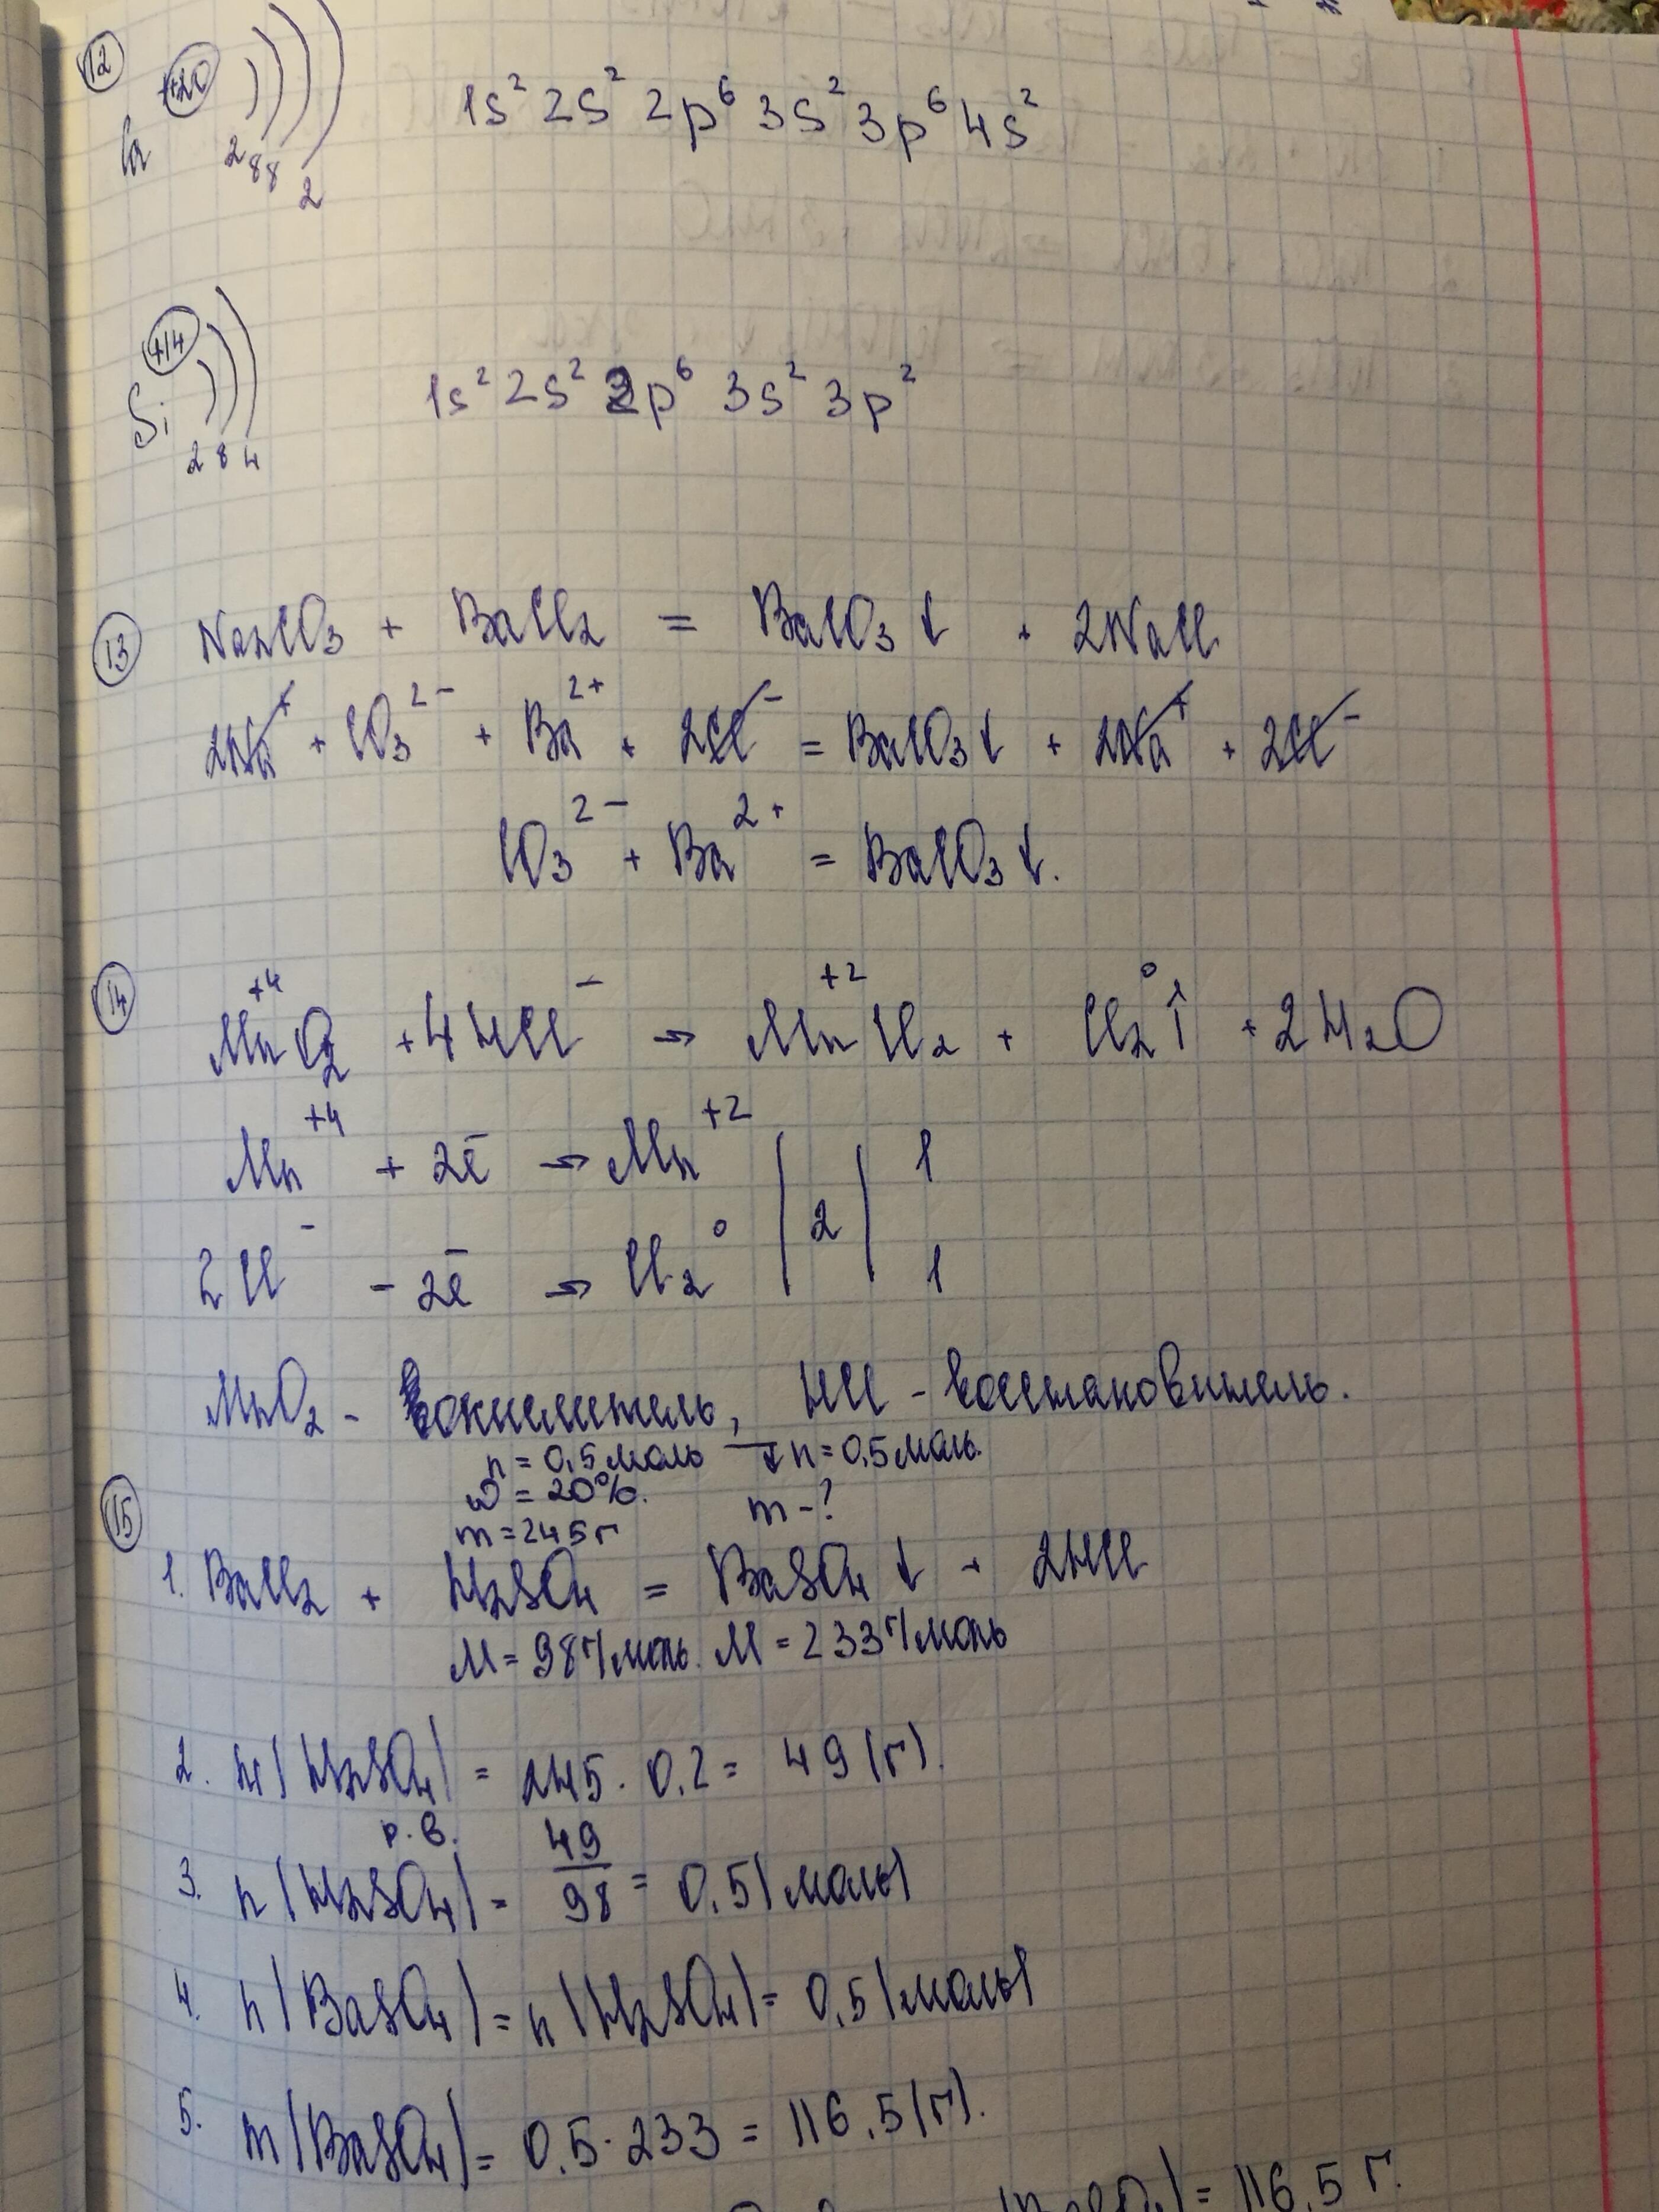 12 Ca +20 ))))
2 8 8 2
1s² 2s² 2p⁶ 3s² 3p⁶ 4s²
Si +14 )))
2 8 4
1s² 2s² 2p⁶ 3s² 3p²
13 Na₂CO₃ + BaCl₂ = BaCO₃↓ + 2NaCl
2Na⁺ + CO₃²⁻ + Ba²⁺ + 2Cl⁻ = BaCO₃↓ + 2Na⁺ + 2Cl⁻
CO₃²⁻ + Ba²⁺ = BaCO₃↓.
14 Mn⁺⁴O₂ + 4HCl⁻ → Mn⁺²Cl₂ + Cl₂⁰↑ + 2H₂O
Mn⁺⁴ + 2ē → Mn⁺² | 2 | 1
2Cl⁻ - 2ē → Cl₂⁰ | 1
MnO₂ - окислитель, HCl - восстановитель.
15 n = 0,5 моль → n = 0,5 моль.
w = 20%. m - ?
m = 245 г
1. BaCl₂ + H₂SO₄ = BaSO₄↓ + 2HCl
M = 98 г/моль. M = 233 г/моль
2. m(H₂SO₄) = 245 · 0,2 = 49 (г).
р.в.
3. n(H₂SO₄) = 49/98 = 0,5 (моль)
4. n(BaSO₄) = n(H₂SO₄) = 0,5 (моль)
5. m(BaSO₄) = 0,5 · 233 = 116,5 (г).
= 116,5 г.